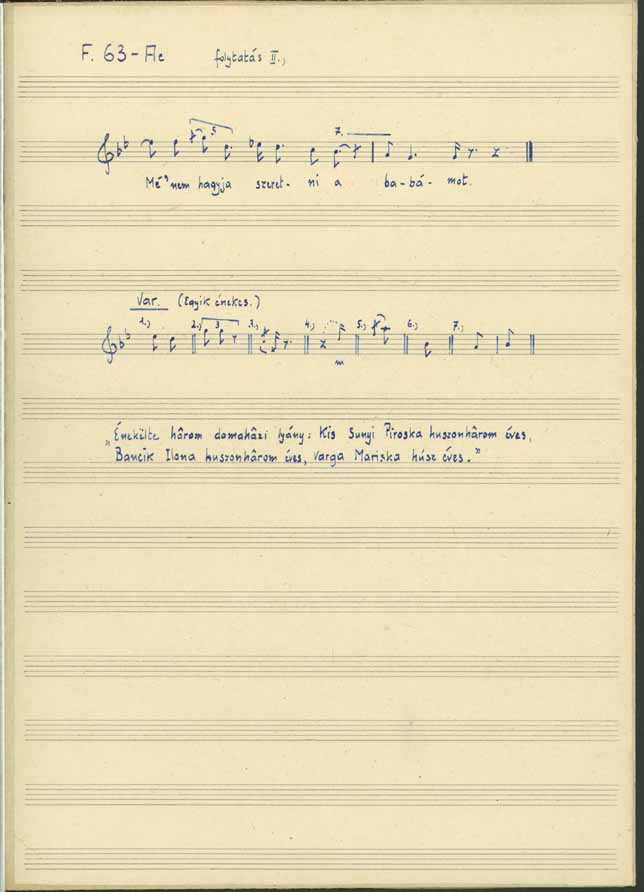 F. 63 - Ac folytatás II.,
5. 7.
Mé' nem hagyja szeret- ni a ba-bá-mot.
Var. (Egyik énekes.)
1.) 2.) 3 3.) 4.) 5.) 6.) 7.)
m
„Énekelte három domaházi lyány: Kis Sunyi Piroska huszonhárom éves,
Bančik Ilona huszonhárom éves, Varga Mariska húsz éves."